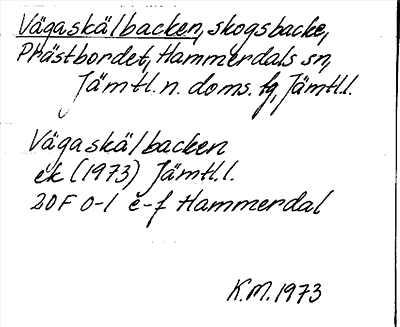 Vägaskälbacken, skogsbacke,
Prästbordet, Hammerdals sn,
Jämtl. n. doms. fg, Jämtl.l.
Vägaskälbacken
ek (1973) Jämtl.l.
20F 0-1 e-f Hammerdal
K.M. 1973